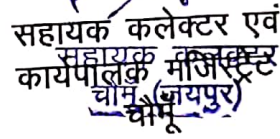 सहायक कलेक्टर एवं
सहायक कलक्टर
कार्यपालक मजिस्ट्रेट
चौमूं (जयपुर)
चौमूँ